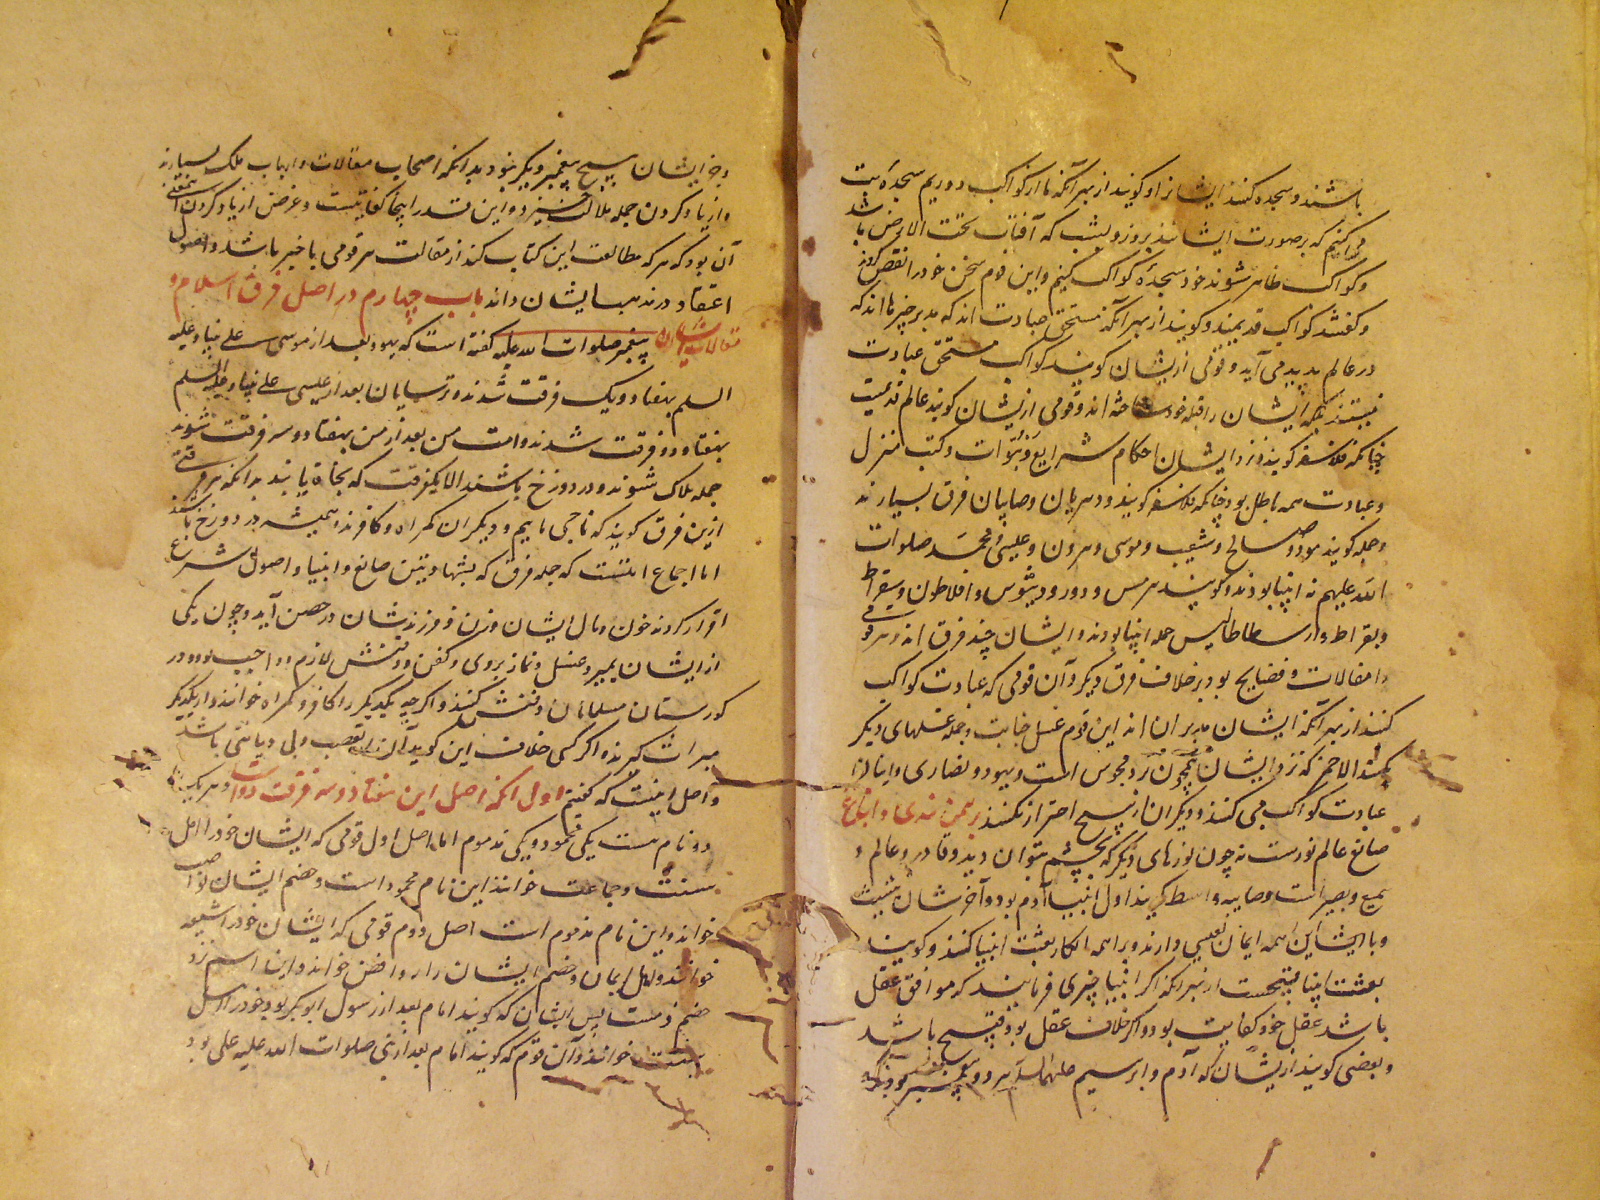 باشند و سجده کنند ایشانرا و گویند از بهر آنکه ما از کواکب دوریم سجدۀ بت
می کنیم که بر صورت ایشانند بروز و بشب که آفتاب تحت الارض باشد
و کواکب ظاهر شوند خود سجدۀ کواکب کنیم و این قوم سخن خود را نقض کردند
و گفتند کواکب قدیمند و گویند از بهر آنکه مستحق عبادت اند که مدبر چیزها اند که
در عالم پدید می آید و قومی ازیشان گویند کواکب مستحق عبادت
نیستند بلکه ایشان را قبله خود ساخته اند و قومی ازیشان گویند عالم قدیمست
چنانکه فلاسفه گویند و نزد ایشان احکام شرایع و نبوّات و کتب منزل
و عبادت همه باطل بود چنانکه فلاسفه گویند و دهریان و صابیان فرق بسیارند
و جمله گویند هود و صالح و شعیب و موسی و هرون و عیسی و محمّد صلوات
الله علیهم نه انبیا بودند و گویند هرمس و دورودیثوس و افلاطون و سقراط
و بقراط و ارسطاطالیس جمله انبیا بودند و ایشان چند فرق اند و هر فرقی
را مقالات و فضایح بود بر خلاف فرق دیگر و آن قومی که عبادت کواکب
کنند از بهر آنکه ایشان مدبران اند این قوم غسل جنابت و جمله غسلهای دیگر
کنند الاحمر که نزد ایشان همچون نزد مجوس است و یهود و نصاری و اینان
عبادت کواکب می کنند و دیگران از هیچ احتراز نکنند برهمن هندی و اتباع
صانع عالم نورست نه چون نورهای دیگر که بچشم بتوان دید و قادر و عالم و
سمیع و بصیر است و صابیه واسط گویند اول انبیا آدم بود و آخرشان شیث
و با ایشان این همه ایمان بعیسی دارند و براهمه انکار بعثت انبیا کنند و گویند
بعثت انبیا قبیحست از بهر آنکه اگر انبیا چیزی فرمایند که موافق عقل
باشد عقل خود کفایت بود و اگر خلاف عقل بود قبیح باشد
و بعضی گویند ازیشان که آدم و ابراهیم علیهما السلام هر دو پیغمبر بودند
و جز ایشان هیچ پیغمبر دیگر نبود بدانکه اصحاب مقالات و ارباب ملک بسیارند
و از یاد کردن جمله ملالت خیزد و این قدر اینجا کفایتست و غرض از یاد کردن
آن بود که هر که مطالعت این کتاب کند از مقالت هر قومی با خبر باشد و اصول
اعتقاد و رندیها ایشان داند باب چهارم در اصل فرق اسلام و
مقالات ایشان پیغمبر صلوات الله علیه گفته است که یهود بعد از موسی علی نبینا و علیه
السلم بهفتاد و یک فرقت شدند و ترسایان بعد از عیسی علی نبینا و علیه السلم
بهفتاد و دو فرقت شدند و امت من بعد از من بهفتاد و سه فرقت شوند
جمله هلاک شوند و در دوزخ باشند الا یک فرقت که نجاة یابند بدانکه هر فرقتی
ازین فرق گویند که ناجی ماییم و دیگران گمراه و کافرند و همیشه در دوزخ باشند
اما اجماع امتست که جمله فرق که بشهادتین صانع و انبیا و اصول شرع
اقرار کردند خون و مال ایشان و زن و فرزندشان در حصن آید و چون یکی
از ایشان بمیرد غسل و نماز بروی و کفن و دفنش لازم و واجب بود و در
گورستان مسلمانان دفنش کنند و اگر چه یکدیگر را کافر و گمراه خوانند و از یکدیگر
میراث گیرند و اگر کسی خلاف این گوید آن از تعصب و بی دیانتی باشد
و اصل اینست که گفتیم اول آنکه اصل این هفتاد و سه فرقت دو است و هر یک
دو نام هست یکی محمود و یکی مذموم اما اصل اول قومی که ایشان خود را اهل
سنت و جماعت خوانند این نام محمود است و خصم ایشان نواصب
خوانند و این نام مذموم است اصل دوم قومی که ایشان خود را شیعه
خوانند و اهل ایمان و خصم ایشان را روافض خوانند و این اسم نزد
خصم ذمست پس ایشان که گویند امام بعد از رسول ابو بکر بود خود را اهل
سنت خوانند و آن قوم که گویند امام بعد از نبی صلوات الله علیه علی بود